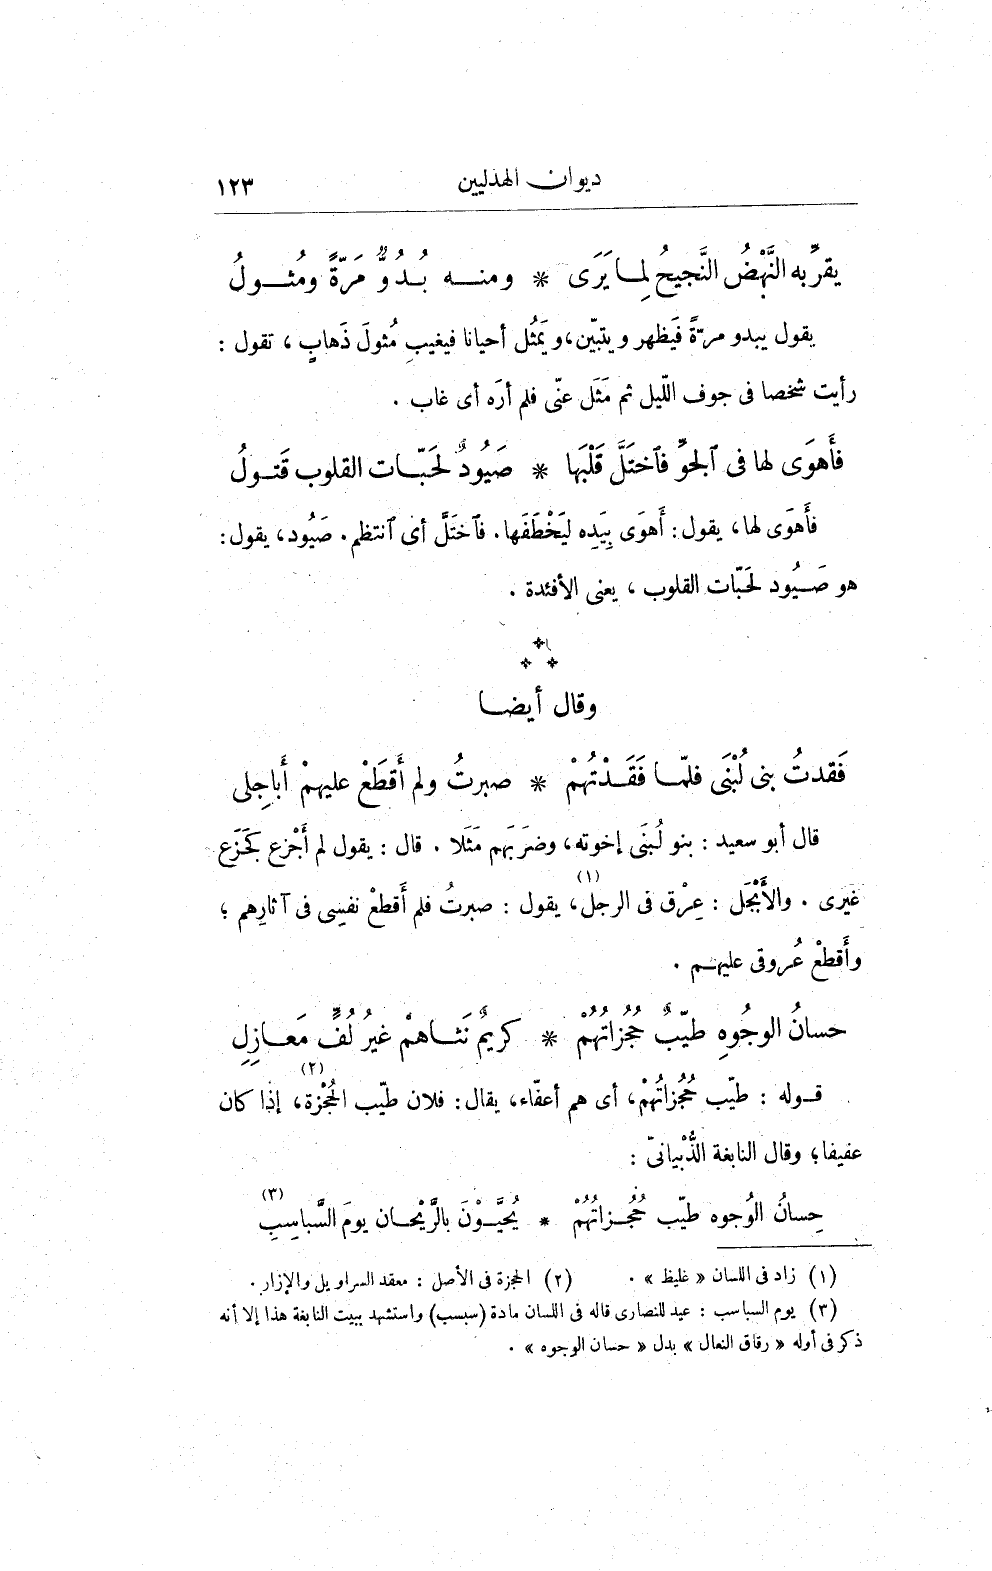 ديوان الهذليين ١٢٣
يقرِّبه النَّهْضُ النَّجيحُ لِما يَرَى * ومنه بُدُوٌّ مَرّةً ومُثولُ
يقول يبدو مرّةً فَيَظهر ويتبيّن، ويَمثُل أحيانا فيغيب مُثولَ ذَهابٍ، تقول :
رأيت شخصا فى جوف اللّيل ثم مَثَل عنّى فلم أرَه أى غاب .
فأَهوَى لها فى ٱلجوِّ فٱختَلَّ قَلْبَها * صَيُودٌ لحَبّات القلوب قَتولُ
فأَهوَى لها، يقول: أَهوَى بِيَدِه ليَخْطَفَها. فٱختَلَّ أى ٱنتظم. صَيُود، يقول:
هو صَيُود لحَبّات القلوب ، يعنى الأفئدة .
وقال أيضا
فَقدتُ بنى لُبْنَى فلمّا فَقَدْتُهُمْ * صبرتُ ولم أَقطَعْ عليهمْ أَباجِلى
قال أبو سعيد : بنو لُبنَى إخوته، وضرَبَهم مَثَلا . قال : يقول لم أَجْزع كَجَزَع
غيرى . والأَبْجَل : عِرْق فى الرجل(١)، يقول : صبرتُ فلم أَقطعْ نفسِى فى آثارِهم ؛
وأَقطعْ عُروقى عليهم .
حسانُ الوجُوهِ طيّبٌ حُجُزاتُهُمْ * كريمٌ نَثاهمْ غيرُ لُفٍّ مَعازِلِ
قوله : طيّب حُجُزاتُهُمْ، أى هم أعفّاء، يقال: فلان طيّب الحُجْزة(٢)، إذا كان
عفيفا؛ وقال النابغة الذُّبْيانىّ :
حِسانُ الوُجوه طيّب حُجُزاتُهُمْ * يُحَيَّوْنَ بالرَّيْحان يومَ السَّباسِبِ(٣)
(١) زاد فى اللسان « غليظ » . (٢) الحجزة فى الأصل : معقد السراويل والإزار .
(٣) يوم السباسب : عيد للنصارى قاله فى اللسان مادة (سبسب) واستشهد ببيت النابغة هذا إلا أنه
ذكر فى أوله « رقاق النعال » بدل « حسان الوجوه » .